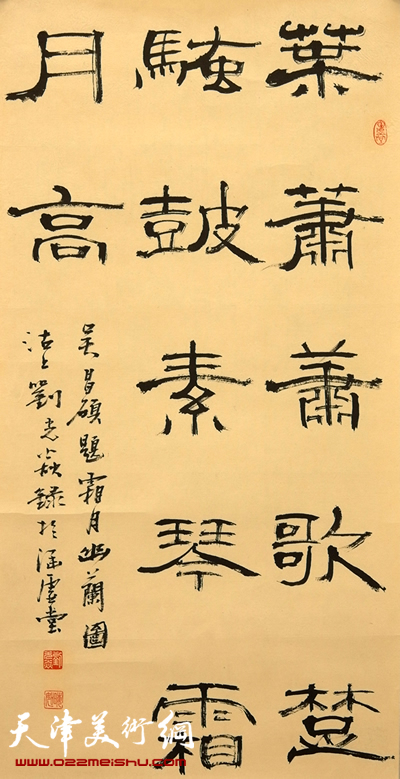 葉蕭蕭歌楚
騷皷素琴霜
月高
吴昌碩題霜月幽蘭圖
沽上劉 錄於涵虛堂
天津美術網
www.022meishu.com